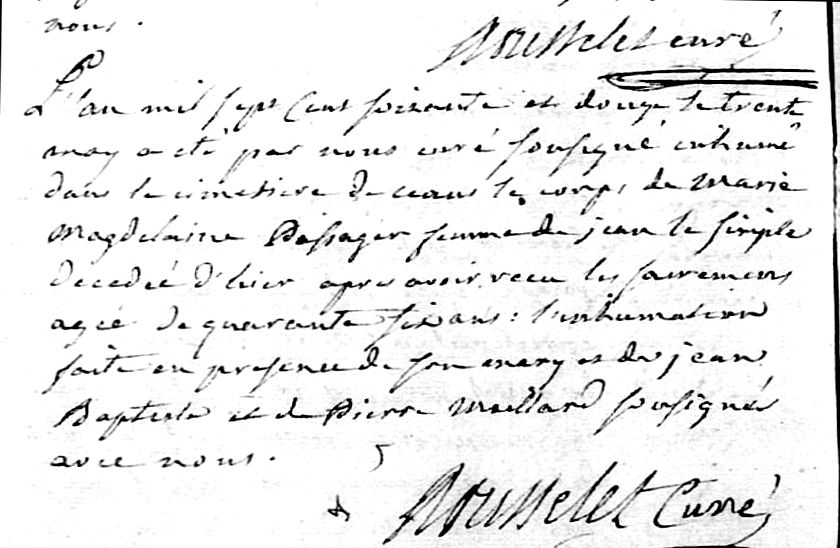 nous.
Rousselet curé
L'an mil sept cent soixante et douze le trente
may a eté par nous curé sousigné inhumé
dans le cimetiere de ceans le corps de Marie
Magdelaine Passager femme de jean le simple
decedée d'hier apres avoir recu les sacremens
agée de quarante six ans: l'inhumation
faite en presence de son mary et de jean
Baptiste et de Pierre Maillard sousignés
avec nous.
Rousselet Curé